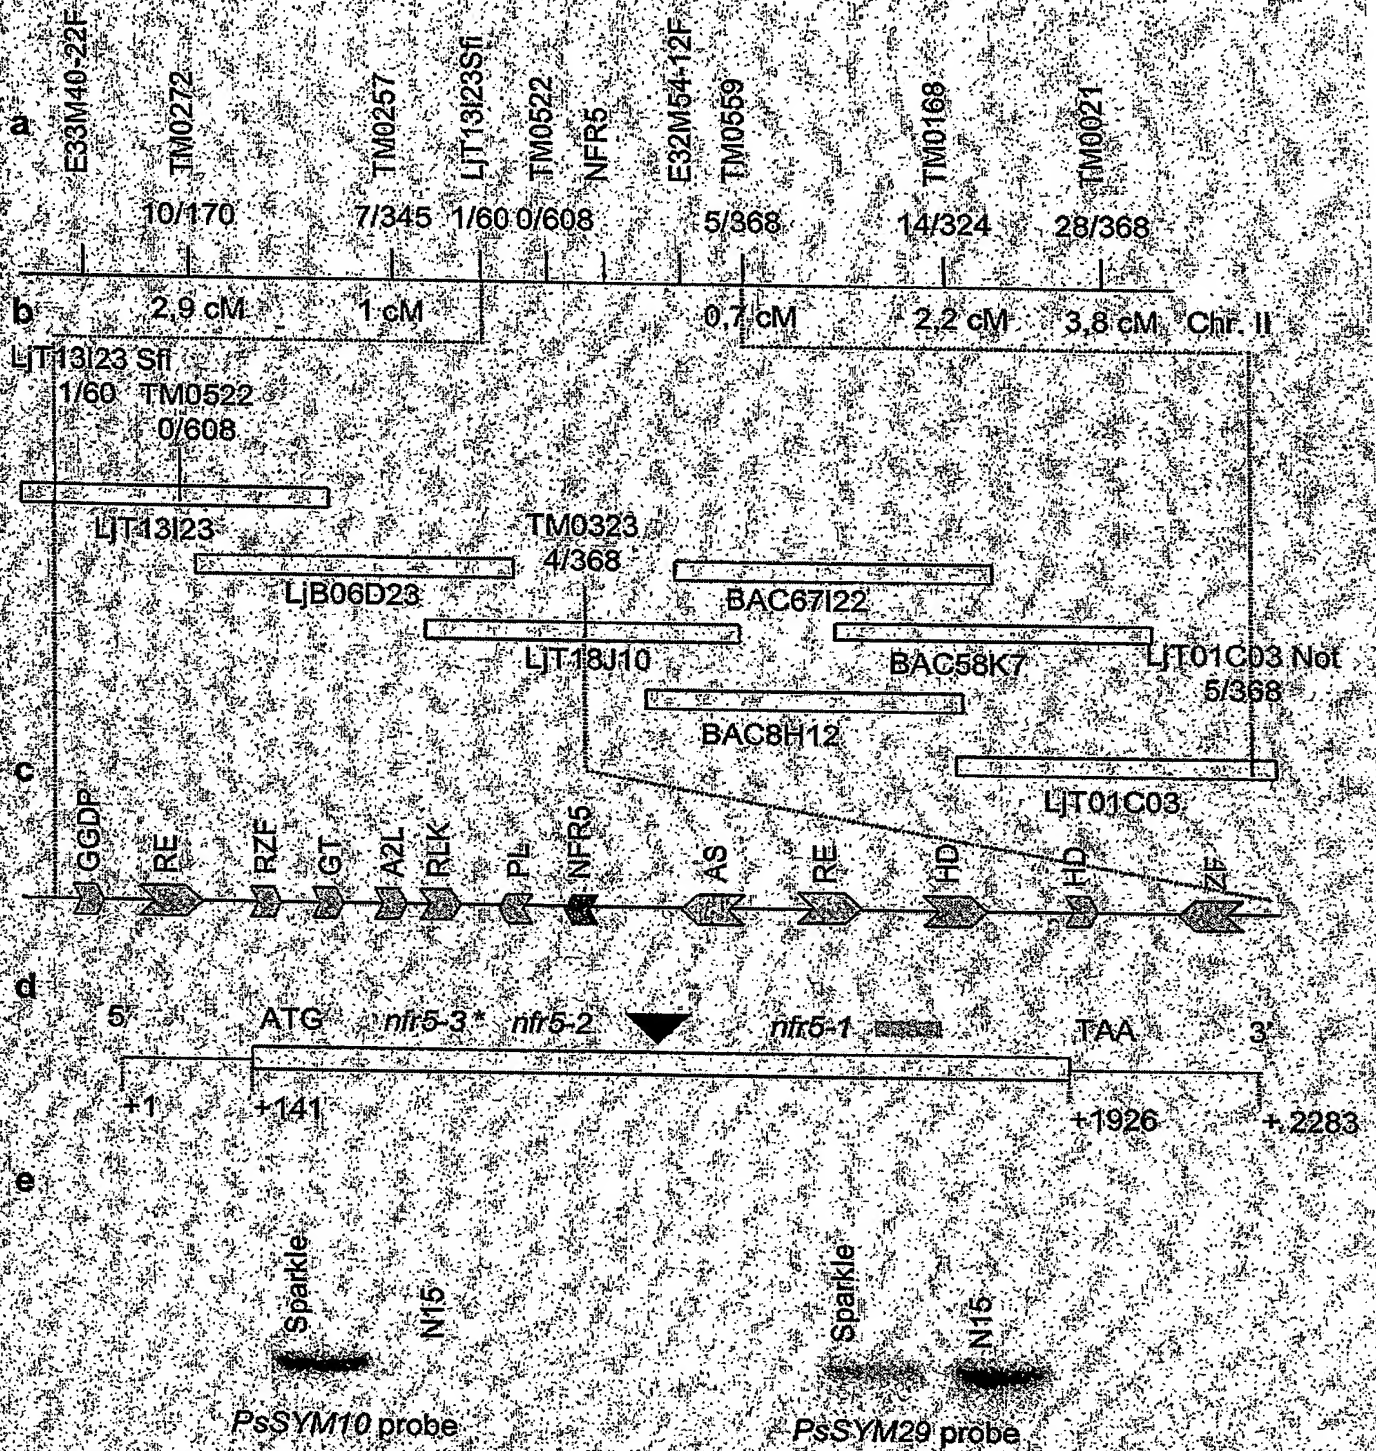 a
E33M40-22F
TM0272
TM0257
LjT13I23Sfi
TM0522
NFR5
E32M54-12F
TM0559
TM0168
TM0021
10/170 7/345 1/60 0/608 5/368 14/324 28/368
b
2,9 cM 1 cM 0,7 cM 2,2 cM 3,8 cM Chr. II
LjT13I23 Sfi
1/60 TM0522
0/608
LjT13I23
TM0323
4/368
LjB06D23
BAC67I22
LjT18J10
BAC58K7
LjT01C03 Not
5/368
BAC8H12
LjT01C03
c
GGDP
RE
RZF
GT
A2L
RLK
PL
NFR5
AS
RE
HD
HD
ZF
d
5' ATG nfr5-3 * nfr5-2 nfr5-1 TAA 3'
+1 +141 +1926 + 2283
e
Sparkle
N15
Sparkle
N15
PsSYM10 probe
PsSYM29 probe